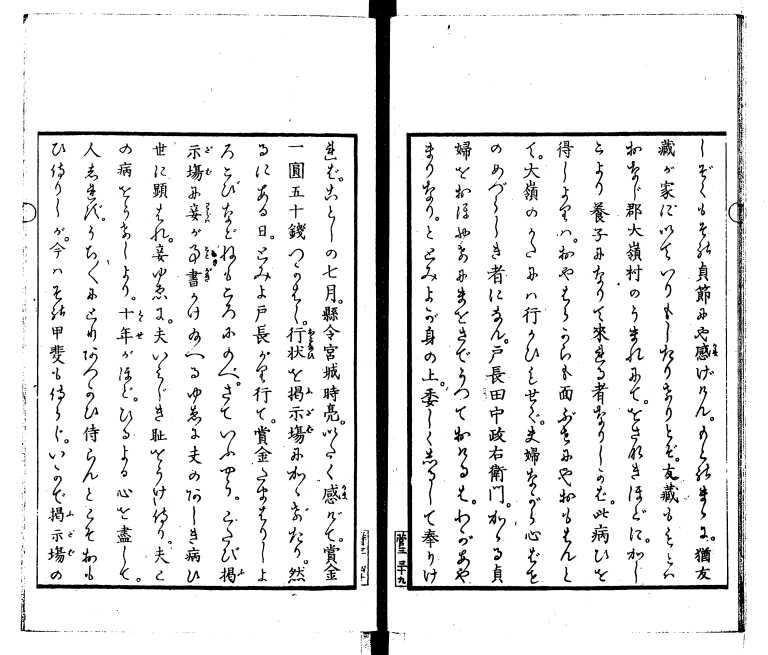 しぞくもその貞節にや感げけん。もとのまゝに。猶友
藏が家にいていりもしたりなりとぞ。友藏もとハ
おなじ郡大嶺村のうまれにて。をさなきほどに。かし
こより養子になりて來れる者なりしかば。此病ひを
得しよりハ。おやはらからも面ぶせにやおもはんと
て。大嶺のかたにハ行かひもせず。夫婦ながら心ばせ
のめづらしき者になん。戸長田中政右衛門。かゝる貞
婦をおほやけにまをさでうつておけるは。わがあや
まりなり。ととみよが身の上。委しくしるして奉りけ
れば。ことしの七月。縣令宮城時亮。いたく感げて。賞金
一圓五十錢つかはし。行状を掲示塲にかゝげたり。然
るにある日。とみよ戸長がり行て。賞金たまはりしよ
ろこびなどねもころにのべ。さていふやう。こたび掲
示塲に妾が事書かけ給へるゆゑに夫のあしき病ひ
世に顕はれ。妾ゆゑに。夫いみじき耻をうけ侍り。夫こ
の病をうけしより。十年がほど。ひるよる心を盡して。
人しれず。とめあつかひ侍らんとこそおも
ひ侍りしが。今ハその甲斐も侍らじ。いかで掲示塲の